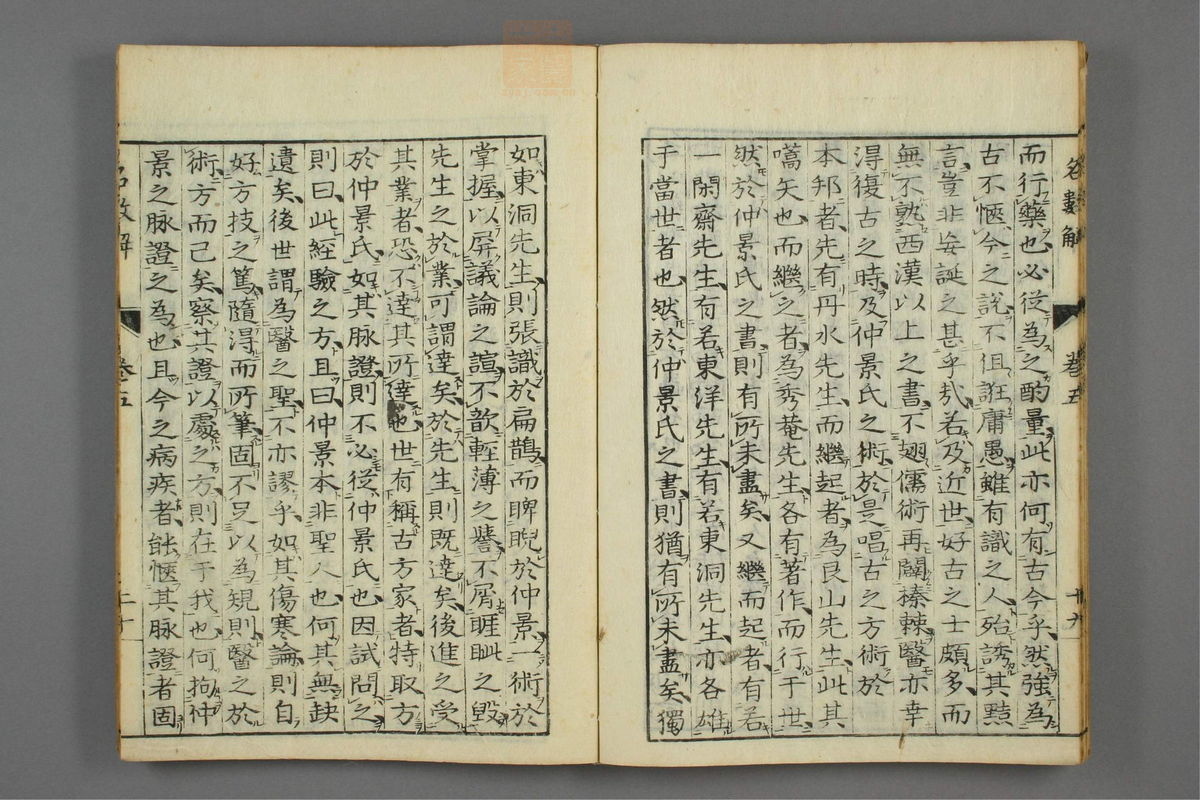 而行藥也必從為之酌量此亦何有古今乎然強為
古不愜今之說不但誑庸愚雖有識之人殆誘其黠
言豈非妄誕之甚乎哉若及近世好古之士頗多而
無不熟西漢以上之書不翅儒術再闢榛棘醫亦幸
淂復古之時及仲景氏之術於是唱古之方術於
本邦者先有丹水先生而繼起者為艮山先生此其
嚆矢也而繼之者為秀菴先生各有著作而行于世
然於仲景氏之書則有所未盡矣又繼而起者有若
一閑齋先生有若東洋先生有若東洞先生亦各雄
于當世者也然於仲景氏之書則猶有所未盡矣獨
卷五
如東洞先生則張識於扁鵲而睥睨於仲景一術於
掌握以屏議論之諠不歆輊薄之譽不屑睚眦之毀
先生之於業可謂達矣於先生則既達矣後進之受
其業者恐不達其所達也世有稱古方家者特取方
於仲景氏如其脉證則不必從仲景氏也因試問之
則曰此經驗之方且曰仲景本非聖人也何其無缺
遺矣後世謂為醫之聖不亦謬乎如其傷寒論則自
好方技之篤隨淂而所筆固不足以為規則醫之於
術方而已矣察其證以處之方則在于我也何拘仲
景之脉證之為也且今之病疾者能愜其脉證者固
卷五